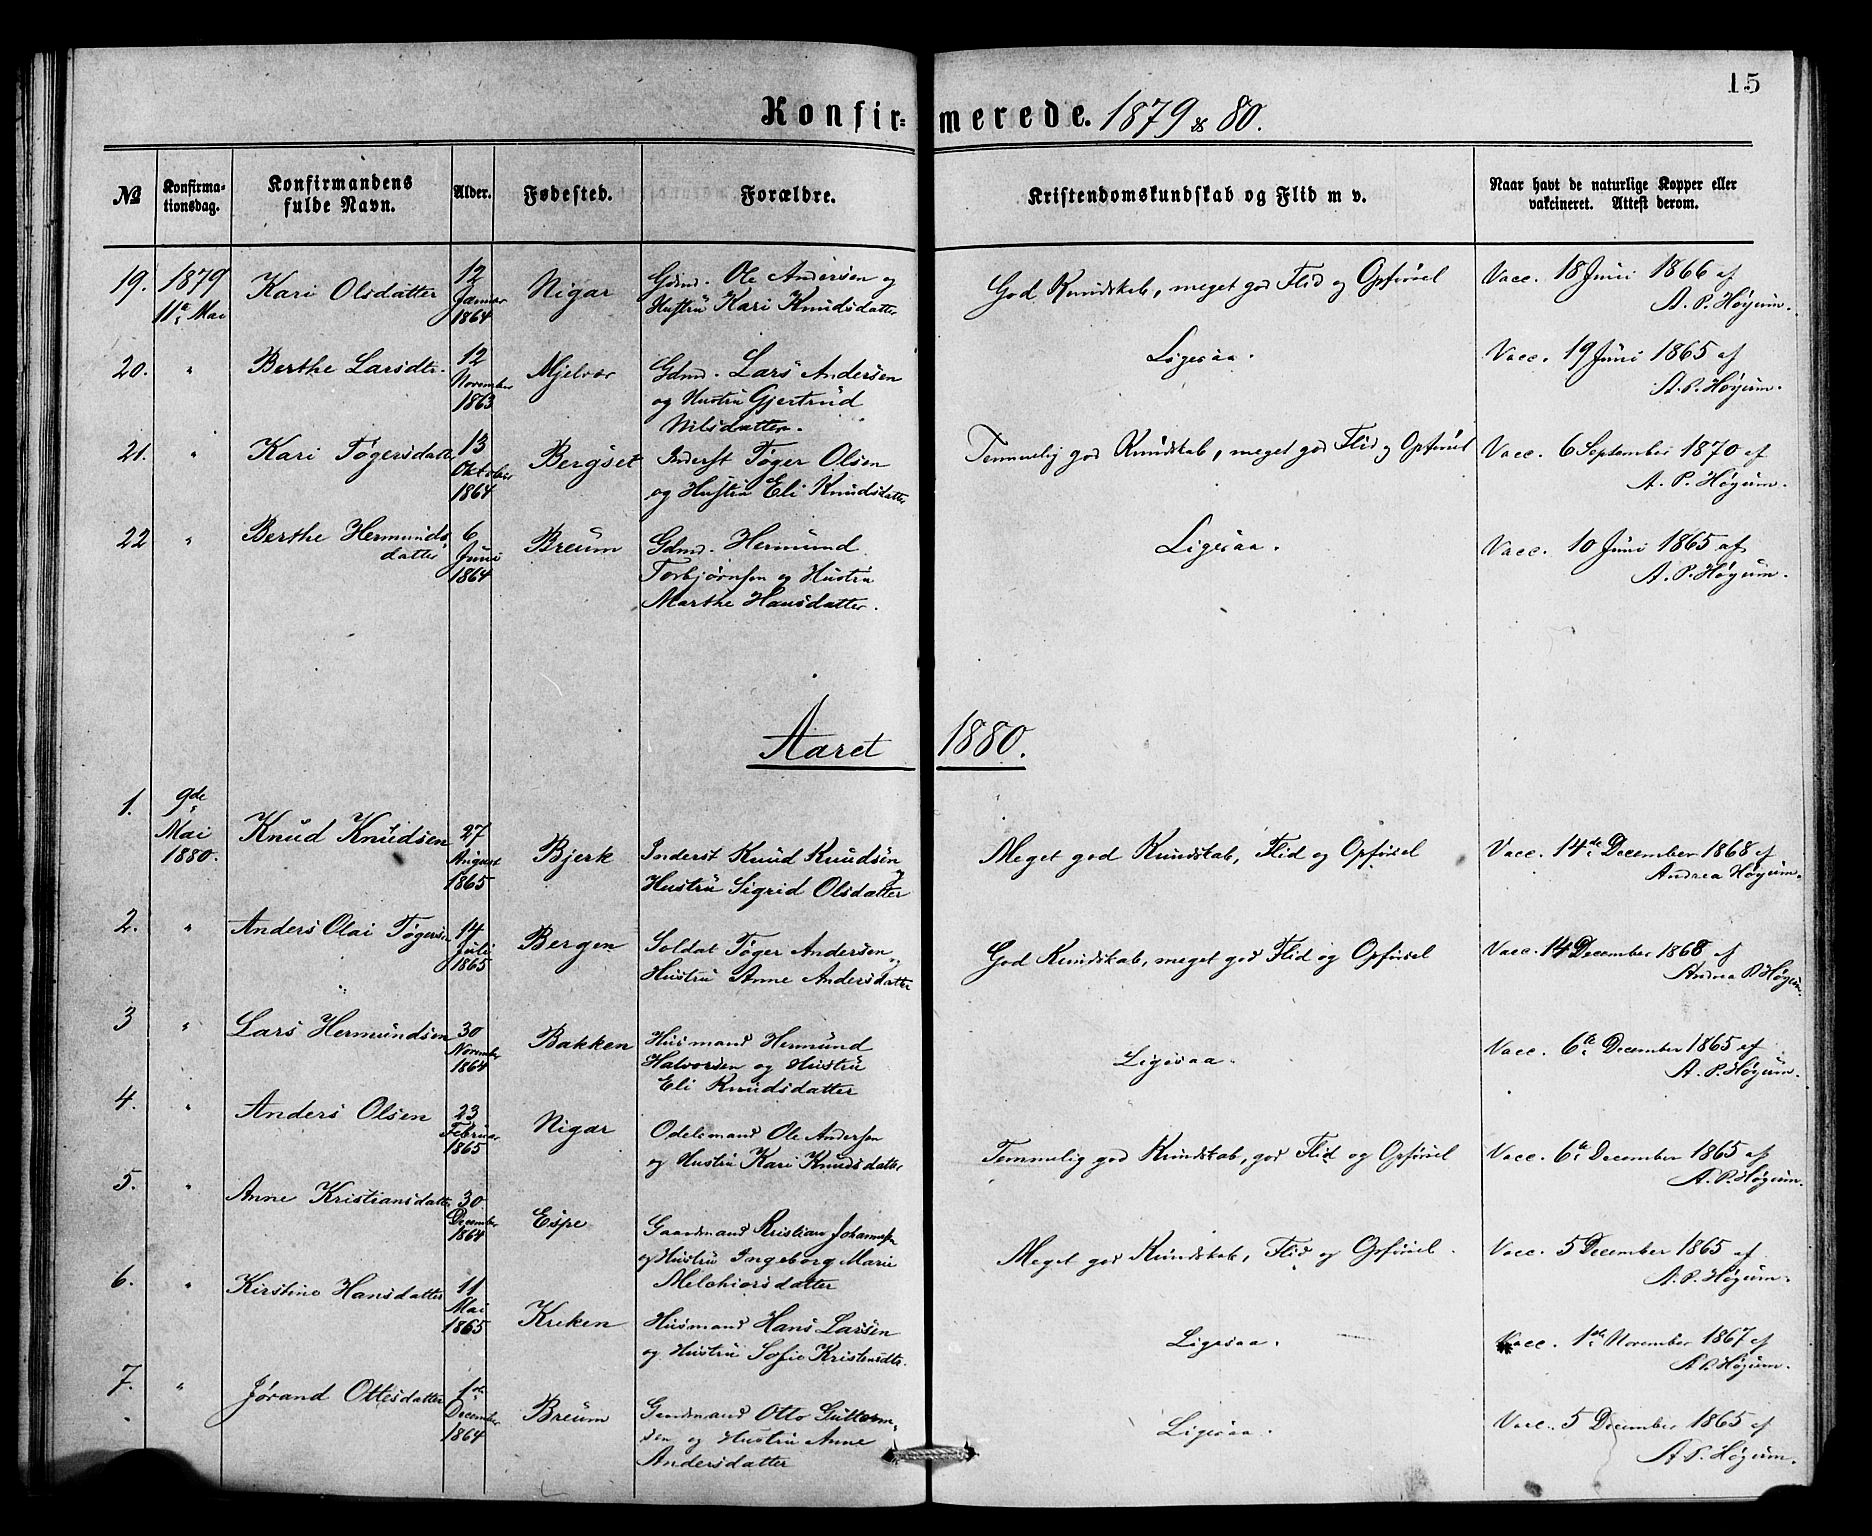 15
Konfir= merede. 1879 & 80.
No | Konfirma-tionsdag. | Konfirmandens fulde Navn. | Alder. | Fødested. | Forældre. | Kristendomskundskab og Flid m v. | Naar havt de naturlige Kopper eller vakcineret. Attest derom.
19. | 1879 11te Mai | Kari Olsdatter | 12 Januar 1864 | Nigar | Gdmd. Ole Andersen og Hustru Kari Knudsdatter | God Kundskab, meget god Flid og Opførsel | Vacc. 18 Juni 1866 af A. P. Høyum.
20. | " | Berthe Larsdtr. | 12 November 1863 | Mjelvær | Gdmd. Lars Andersen og Hustru Gjertrud Nilsdatter. | Ligesaa. | Vacc. 19 Juni 1865 af A. P. Høyum.
21. | " | Kari Tøgersdatter | 13 Oktober 1864 | Bergset | Inderst Tøger Olsen og Hustru Eli Knudsdatter | Temmelig god Kundskab, meget god Flid og Opførsel | Vacc. 6 September 1870 af A. P. Høyum.
22 | " | Berthe Hermunds datter | 6 Juni 1864 | Breum | Gdmd. Hermund Torbjørnsen og Hustru Marthe Hansdatter. | Ligesaa. | Vacc. 10 Juni 1865 af A. P. Høyum.
Aaret 1880.
1. | 9de Mai 1880. | Knud Knudsen | 27 August 1865 | Bjerk | Inderst Knud Knudsen og Hustru Sigrid Olsdatter | Meget god Kundskab, Flid og Opførsel | Vacc. 14de December 1868 af Andrea Høyum.
2. | " | Anders Olai Tøgersen | 14 Juli 1865 | Bergen | Soldat Tøger Andersen og Hustru Anne Andersdatter | God Kundskab, meget god Flid og Opførsel | Vacc. 14 December 1868 af Andrea P Høyum.
3 | " | Lars Hermundsen | 30 November 1864 | Bakken | Husmand Hermund Halvorsen og Hustru Eli Knudsdatter | Ligesaa. | Vacc. 6te December 1865 af A. P. Høyum.
4. | " | Anders Olsen | 23 Februar 1865 | Nigar | Odelsmand Ole Andersen og Hustru Kari Knudsdatter | Temmelig god Kundskab, god Flid og Opførsel | Vacc. 6te December 1865 af A. P. Høyum.
5. | " | Anne Kristiansdatter | 30 December 1864 | Espe | Gaardmand Kristian Johannesen og Hustru Ingeborg Marie Melchiorsdatter | Meget god Kundskab, Flid og Opførsel. | Vacc. 5 December 1865 af A. P. Høyum.
6. | " | Kirstine Hansdatter | 11 Mai 1865 | Kreken | Husmand Hans Larsen og Hustru Sofie Kristensdtr. | Ligesaa. | Vacc. 1ste November 1867 af A P. Høyum.
7. | " | Jørand Ottesdatter | 1ste December 1864 | Breum | Gardmand Otto Guttorm-sen og Hustru Anne Andersdatter | Ligesaa. | Vacc. 5 December 1865 af A P. Høyum.